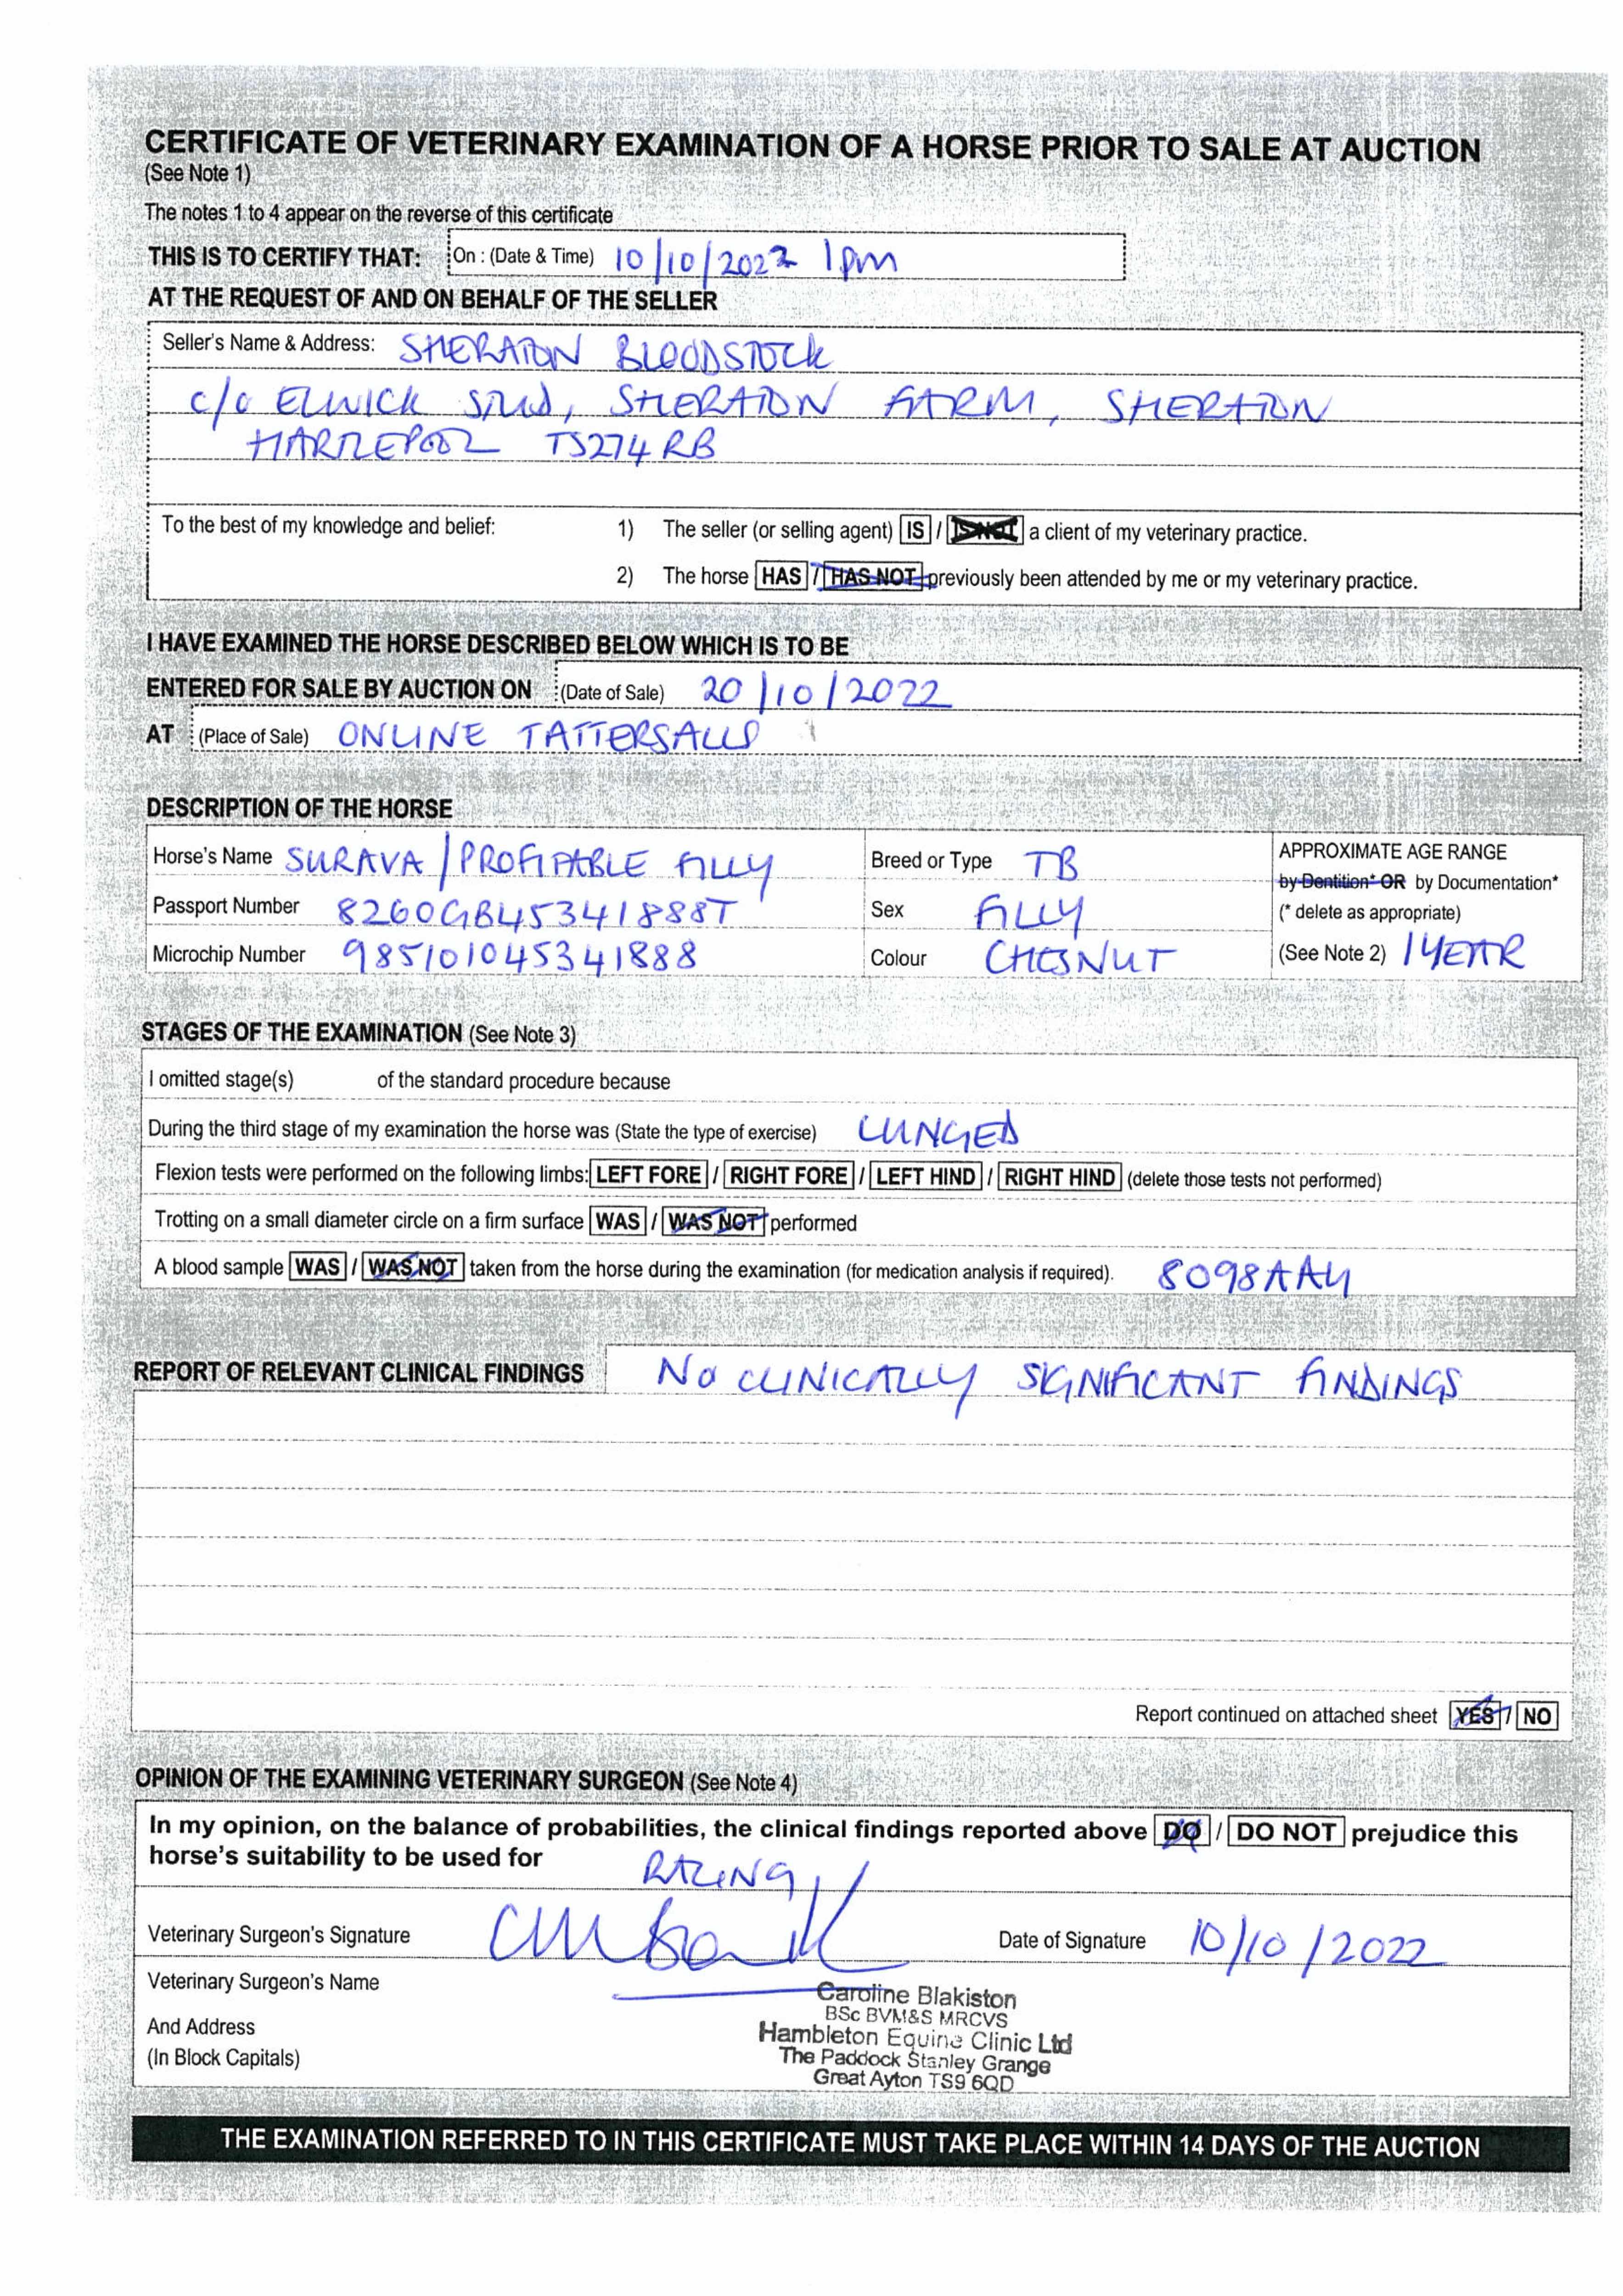 CERTIFICATE OF VETERINARY EXAMINATION OF A HORSE PRIOR TO SALE AT AUCTION
(See Note 1)
The notes 1 to 4 appear on the reverse of this certificate
THIS IS TO CERTIFY THAT: On : (Date & Time) 10/10/2022 1pm
AT THE REQUEST OF AND ON BEHALF OF THE SELLER
Seller's Name & Address: SHERATON BLOODSTOCK
c/o ELWICK STUD, SHERATON FARM, SHERATON
HARTLEPOOL TS274RB
To the best of my knowledge and belief: 1) The seller (or selling agent) IS / IS NOT a client of my veterinary practice.
2) The horse HAS / HAS NOT previously been attended by me or my veterinary practice.
I HAVE EXAMINED THE HORSE DESCRIBED BELOW WHICH IS TO BE
ENTERED FOR SALE BY AUCTION ON (Date of Sale) 20/10/2022
AT (Place of Sale) ONLINE TATTERSALLS
DESCRIPTION OF THE HORSE
Horse's Name SURAVA / PROFITABLE FILLY Breed or Type TB APPROXIMATE AGE RANGE
by Dentition* OR by Documentation*
Passport Number 8260GB45341888T Sex FILLY (* delete as appropriate)
Microchip Number 985101045341888 Colour CHESNUT (See Note 2) 1 YEAR
STAGES OF THE EXAMINATION (See Note 3)
I omitted stage(s) of the standard procedure because
During the third stage of my examination the horse was (State the type of exercise) LUNGED
Flexion tests were performed on the following limbs: LEFT FORE / RIGHT FORE / LEFT HIND / RIGHT HIND (delete those tests not performed)
Trotting on a small diameter circle on a firm surface WAS / WAS NOT performed
A blood sample WAS / WAS NOT taken from the horse during the examination (for medication analysis if required).
REPORT OF RELEVANT CLINICAL FINDINGS NO CLINICALLY SIGNIFICANT FINDINGS
Report continued on attached sheet YES / NO
OPINION OF THE EXAMINING VETERINARY SURGEON (See Note 4)
In my opinion, on the balance of probabilities, the clinical findings reported above DO / DO NOT prejudice this
horse's suitability to be used for RACING
Veterinary Surgeon's Signature Date of Signature 10/10/2022
Veterinary Surgeon's Name
Caroline Blakiston
BSc BVM&S MRCVS
And Address
Hambleton Equine Clinic Ltd
(In Block Capitals)
The Paddock Stanley Grange
Great Ayton TS9 6QD
THE EXAMINATION REFERRED TO IN THIS CERTIFICATE MUST TAKE PLACE WITHIN 14 DAYS OF THE AUCTION